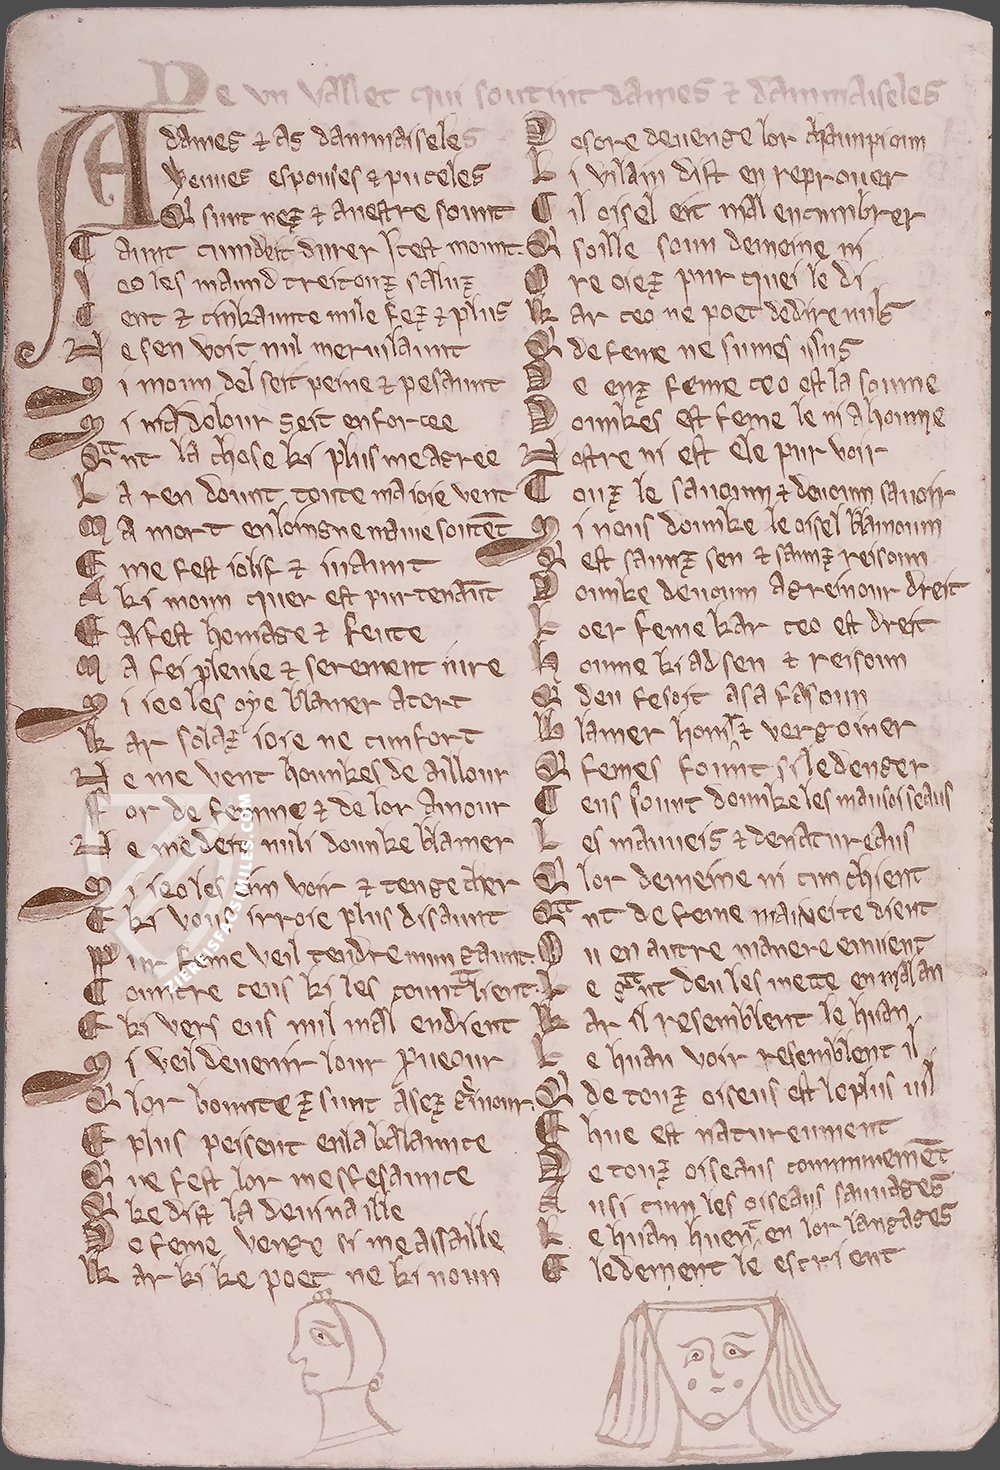 De vn vallet qui soutint dames ⁊ dammaiseles
A dames ⁊ as dammaiseles
Venues espouses ⁊ puceles
Q sunt nez ⁊ a nestre sount
T aunt cum deit durer cest mount
I eo les maund treitouz saluz
C ent ⁊ cinkaunte mile fez ⁊ plus
N e sen voit nul meruilaunt
S i moun del seit peine ⁊ pesaunt
S i ma dolour seit enforcee
Qant la chose ki plus me agree
L a ren dount toute ma ioie vent
M a mort enloingne ma uie soutent
E me fest iolif ⁊ iuaunt
A ki moun quer est purtenaunt
E ai fest homage ⁊ feute
M a fei pleuie ⁊ serement iure
S i ieo les oye blamer a tort
K ar solaz ioie ne cunfort
N e me vent hounkes de aillour
F or de femme ⁊ de lor amour
N e me deit nuli dounke blamer
S i ieo les eim voir ⁊ tenge cher
E ki vous irroie plus disaunt
P ur feme veil tendre mun gaunt
C ountre ceus ki les countralient
E ki vers eus nul mal endient
S i veil deuenir lour prueour
Q lor bountez sunt asez greinour
E plus peisent en la balaunce
Q ne fest lor mesfesaunce
Q ke dist la deuinaille
D e feme venge si me assaille
K ar ki ke poet ne ki noun
D esore deuenge lor chaumpioun
L i vilain dist en reprouer
C il oisel eit mal encumbrer
Q soille soun demeine ni
O re oiez pur quei le di
K ar ceo ne poet dedire nuls
Q de feme ne sumes issus
D e enz feme ceo est la soume
D ounkes est feme le ni a houme
N ostre ni est ele pur voir
T ouz le sauoum ⁊ deuoum sauoir
S i nous dounke le oisel blamoum
Q est saunz sen ⁊ saunz reisoun
D ounke deuoum a greinour dreit
L oer feme kar ceo est dreit
H oume ki ad sen ⁊ reisoun
Q deu fesoit a sa fasoun
B lamer houme ⁊ vergoiner
Q femes fount si ledenger
C eus sount dounke les mauoiseaus
L es mauueis ⁊ denatureaus
Q lor demeine ni cunchient
Qant de feme mauueite dient
O u en autre manere enuient
L e grant deu les mette en mal an
K ar il resemblent le huan
L e huan voir resemblent il
Q de touz oiseus est le plus uil
E hue est natureument
D e touz oiseaus communement
A usi cum les oiseaus sauuages
L e huan huent en lor langages
E ledement le escrient
ZIEREISFACSIMILES.COM